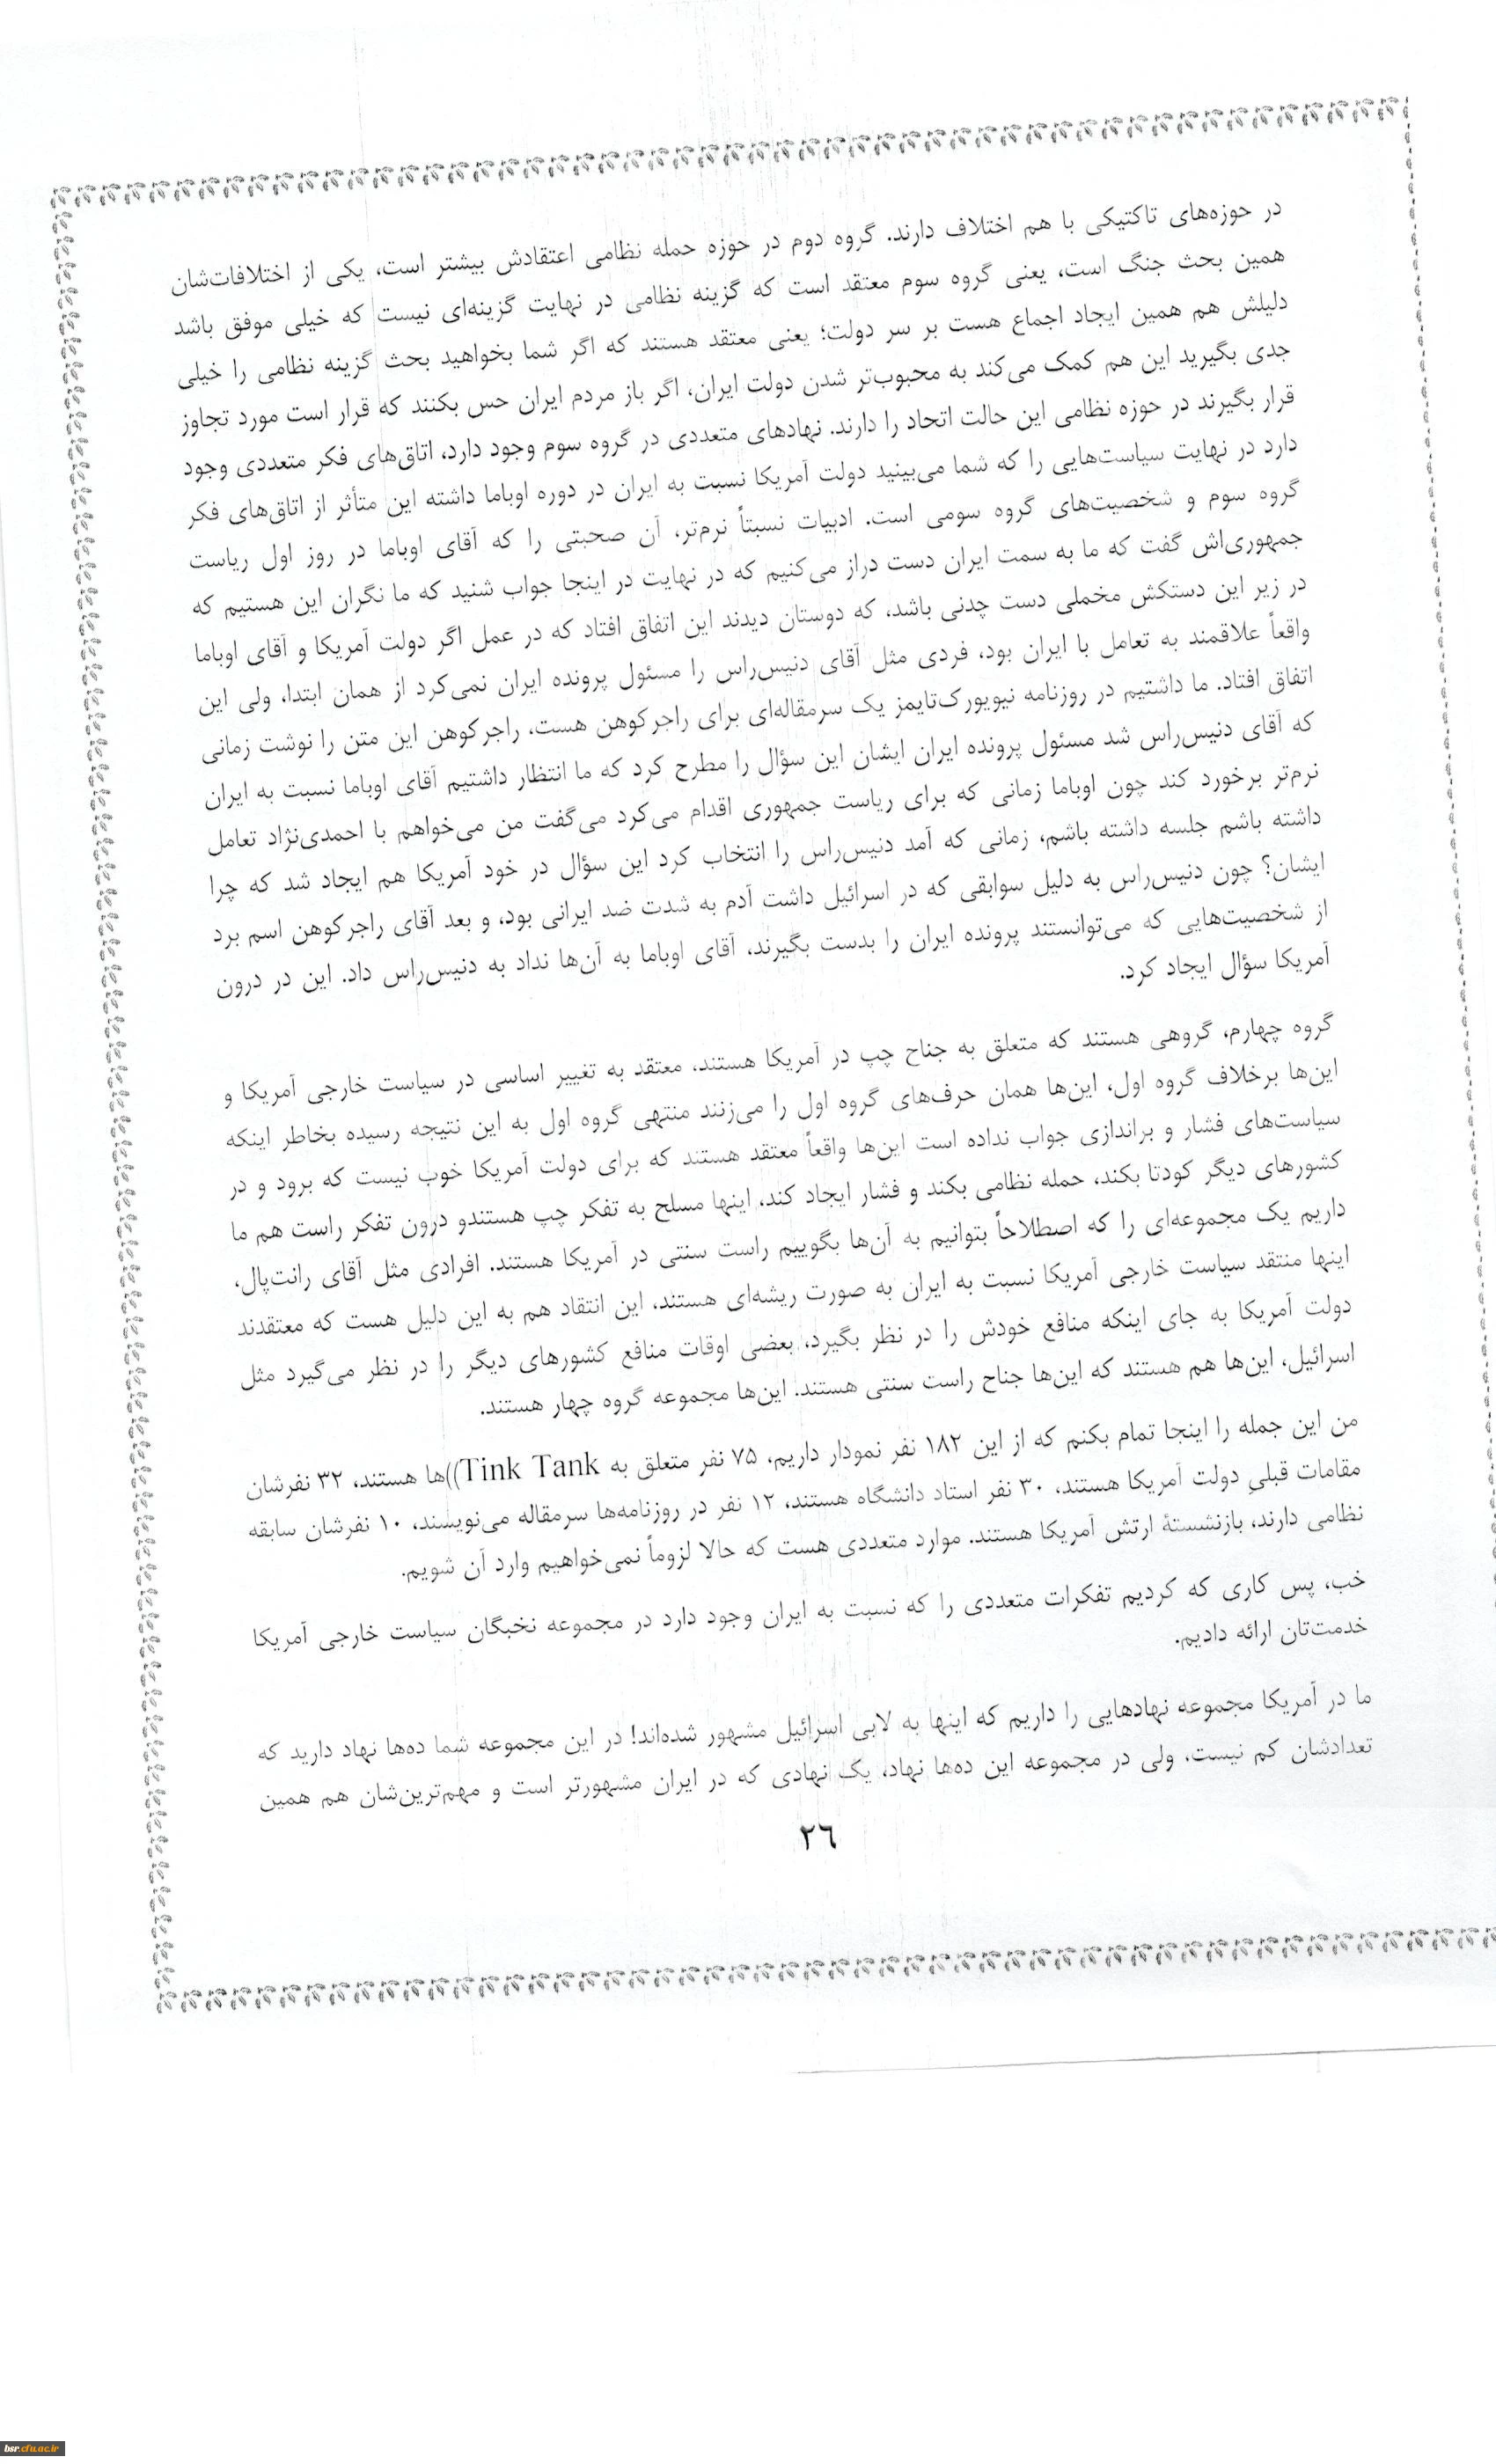 در حوزه‌های تاکتیکی با هم اختلاف دارند. گروه دوم در حوزه حمله نظامی اعتقادش بیشتر است، یکی از اختلافات‌شان
همین بحث جنگ است، یعنی گروه سوم معتقد است که گزینه نظامی در نهایت گزینه‌ای نیست که خیلی موفق باشد
دلیلش هم همین ایجاد اجماع هست بر سر دولت؛ یعنی معتقد هستند که اگر شما بخواهید بحث گزینه نظامی را خیلی
جدی بگیرید این هم کمک می‌کند به محبوب‌تر شدن دولت ایران، اگر باز مردم ایران حس بکنند که قرار است مورد تجاوز
قرار بگیرند در حوزه نظامی این حالت اتحاد را دارند. نهادهای متعددی در گروه سوم وجود دارد، اتاق‌های فکر متعددی وجود
دارد در نهایت سیاست‌هایی را که شما می‌بینید دولت آمریکا نسبت به ایران در دوره اوباما داشته این متأثر از اتاق‌های فکر
گروه سوم و شخصیت‌های گروه سومی است. ادبیات نسبتاً نرم‌تر، آن صحبتی را که آقای اوباما در روز اول ریاست
جمهوری‌اش گفت که ما به سمت ایران دست دراز می‌کنیم که در نهایت در اینجا جواب شنید که ما نگران این هستیم که
در زیر این دستکش مخملی دست چدنی باشد، که دوستان دیدند این اتفاق افتاد که در عمل اگر دولت آمریکا و آقای اوباما
واقعاً علاقمند به تعامل با ایران بود، فردی مثل آقای دنیس‌راس را مسئول پرونده ایران نمی‌کرد از همان ابتدا، ولی این
اتفاق افتاد. ما داشتیم در روزنامه نیویورک‌تایمز یک سرمقاله‌ای برای راجرکوهن هست، راجرکوهن این متن را نوشت زمانی
که آقای دنیس‌راس شد مسئول پرونده ایران ایشان این سؤال را مطرح کرد که ما انتظار داشتیم آقای اوباما نسبت به ایران
نرم‌تر برخورد کند چون اوباما زمانی که برای ریاست جمهوری اقدام می‌کرد می‌گفت من می‌خواهم با احمدی‌نژاد تعامل
داشته باشم جلسه داشته باشم، زمانی که آمد دنیس‌راس را انتخاب کرد این سؤال در خود آمریکا هم ایجاد شد که چرا
ایشان؟ چون دنیس‌راس به دلیل سوابقی که در اسرائیل داشت آدم به شدت ضد ایرانی بود، و بعد آقای راجرکوهن اسم برد
از شخصیت‌هایی که می‌توانستند پرونده ایران را بدست بگیرند، آقای اوباما به آن‌ها نداد به دنیس‌راس داد. این در درون
آمریکا سؤال ایجاد کرد.
گروه چهارم، گروهی هستند که متعلق به جناح چپ در آمریکا هستند، معتقد به تغییر اساسی در سیاست خارجی آمریکا و
این‌ها برخلاف گروه اول، این‌ها همان حرف‌های گروه اول را می‌زنند منتهی گروه اول به این نتیجه رسیده بخاطر اینکه
سیاست‌های فشار و براندازی جواب نداده است این‌ها واقعاً معتقد هستند که برای دولت آمریکا خوب نیست که برود و در
کشورهای دیگر کودتا بکند، حمله نظامی بکند و فشار ایجاد کند، اینها مسلح به تفکر چپ هستندو درون تفکر راست هم ما
داریم یک مجموعه‌ای را که اصطلاحاً بتوانیم به آن‌ها بگوییم راست سنتی در آمریکا هستند. افرادی مثل آقای رانت‌پال،
اینها منتقد سیاست خارجی آمریکا نسبت به ایران به صورت ریشه‌ای هستند، این انتقاد هم به این دلیل هست که معتقدند
دولت آمریکا به جای اینکه منافع خودش را در نظر بگیرد، بعضی اوقات منافع کشورهای دیگر را در نظر می‌گیرد مثل
اسرائیل، این‌ها هم هستند که این‌ها جناح راست سنتی هستند. این‌ها مجموعه گروه چهار هستند.
من این جمله را اینجا تمام بکنم که از این ۱۸۲ نفر نمودار داریم، ۷۵ نفر متعلق به Tink Tank))ها هستند، ۳۲ نفرشان
مقامات قبلیِ دولت آمریکا هستند، ۳۰ نفر استاد دانشگاه هستند، ۱۲ نفر در روزنامه‌ها سرمقاله می‌نویسند، ۱۰ نفرشان سابقه
نظامی دارند، بازنشستهٔ ارتش آمریکا هستند. موارد متعددی هست که حالا لزوماً نمی‌خواهیم وارد آن شویم.
خب، پس کاری که کردیم تفکرات متعددی را که نسبت به ایران وجود دارد در مجموعه نخبگان سیاست خارجی آمریکا
خدمت‌تان ارائه دادیم.
ما در آمریکا مجموعه نهادهایی را داریم که اینها به لابی اسرائیل مشهور شده‌اند! در این مجموعه شما ده‌ها نهاد دارید که
تعدادشان کم نیست، ولی در مجموعه این ده‌ها نهاد، یک نهادی که در ایران مشهورتر است و مهم‌ترین‌شان هم همین
٢٦
bsr.cfu.ac.ir